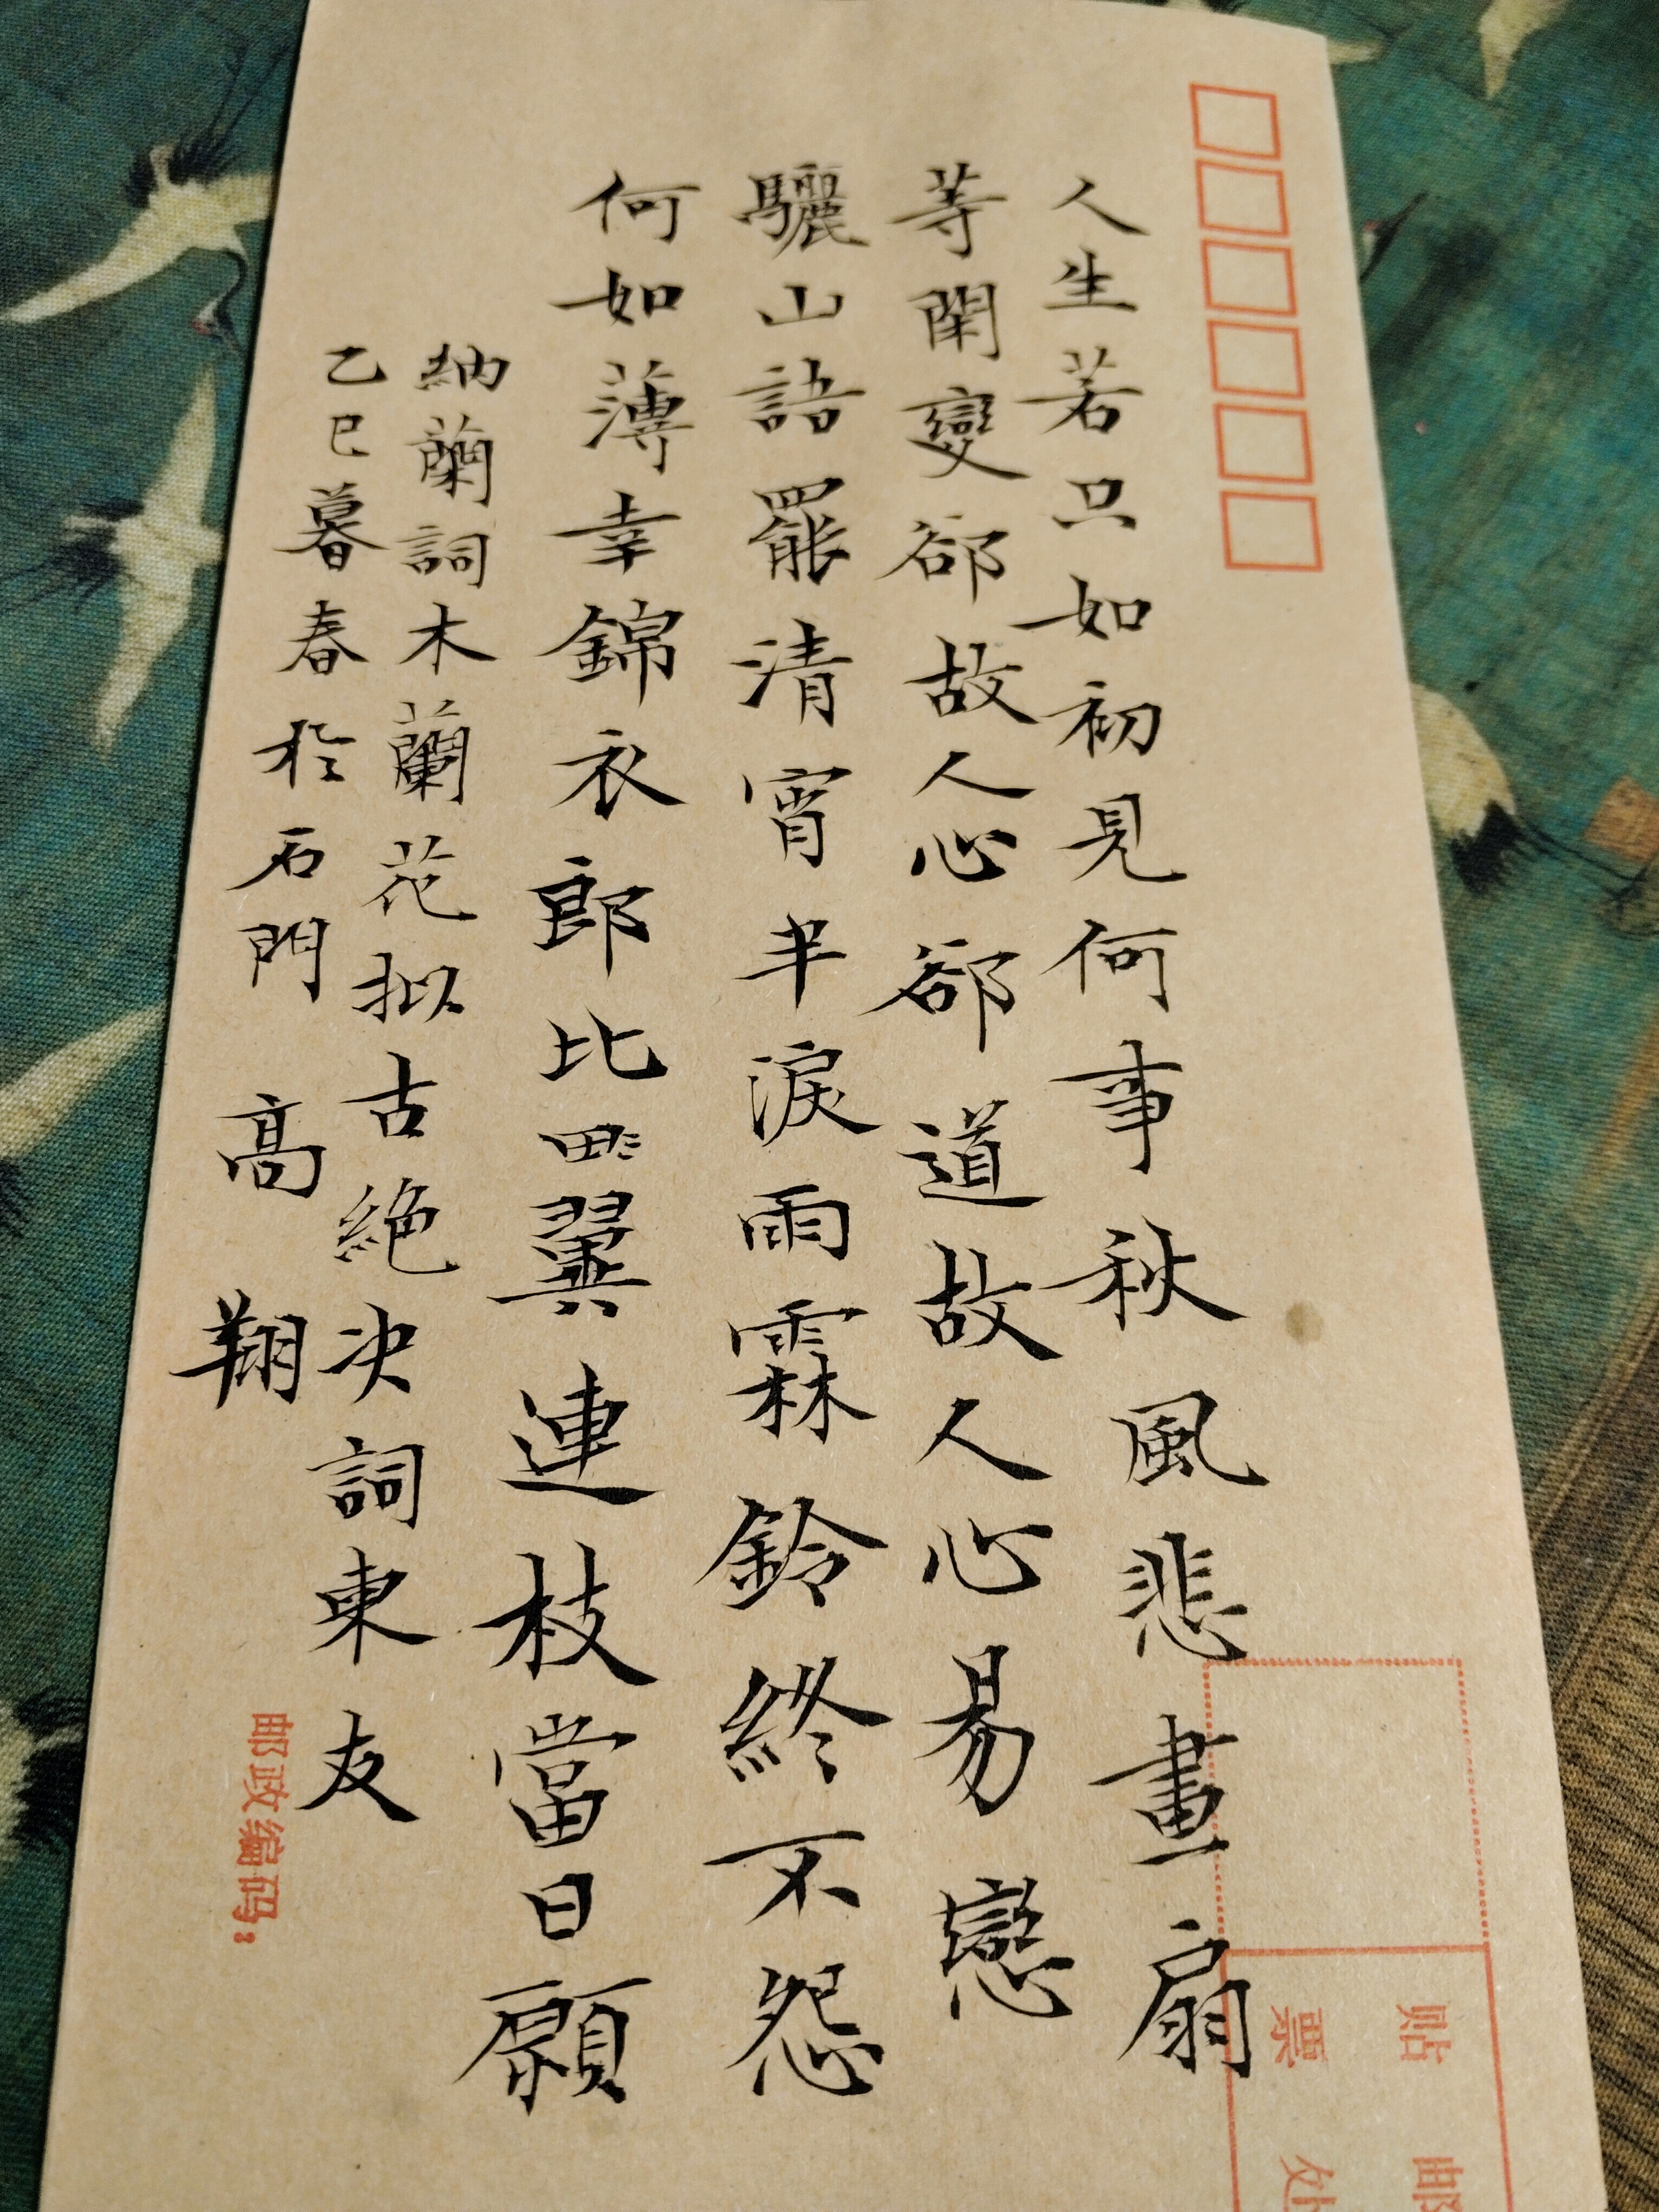 人生若只如初見何事秋風悲畫扇
等閑變郤故人心郤道故人心易戀
驪山語罷清宵半淚雨霖鈴終不怨
何如薄幸錦衣郎比翼連枝當日願
納蘭詞木蘭花拟古絕决詞柬友
乙巳暮春於石門 高翔
贴邮
票处
邮政编码: